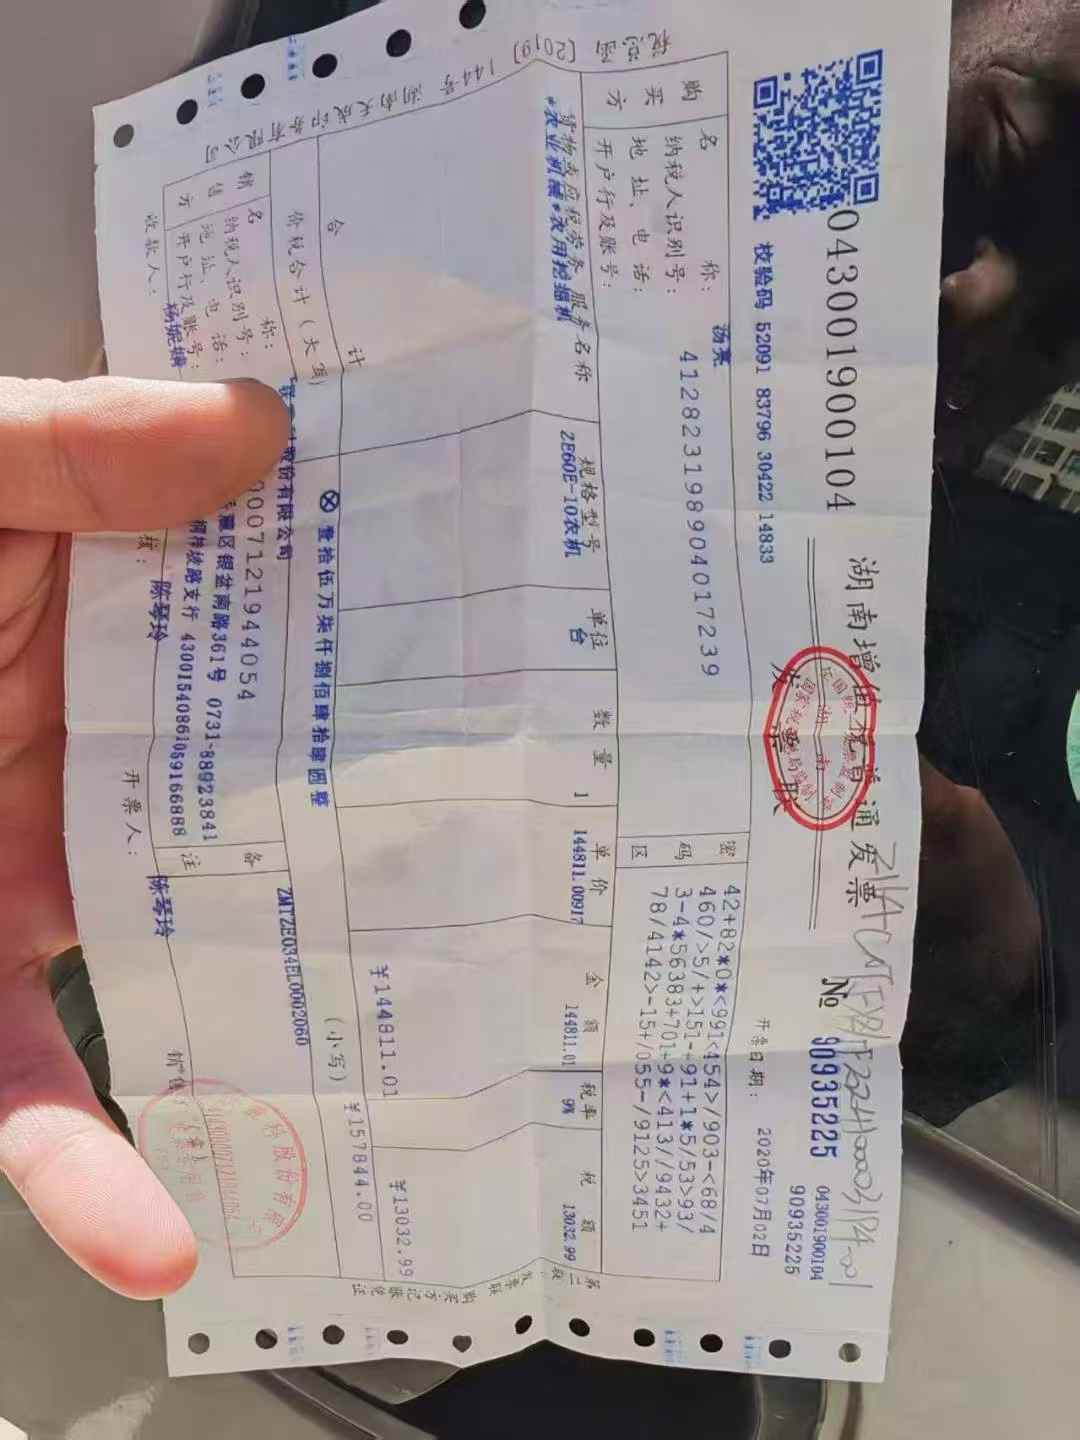 043001900104
湖南增值税普通发票
发票联
No 90935225
043001900104
90935225
校验码 52091 83796 30422 14833
开票日期: 2020年07月02日
购买方
名称: 汤亮
纳税人识别号: 412823198904017239
地址、电话:
开户行及账号:
密码区
42+82*0*<991<454>/903-<68/4
460/>5/+>151-+91+1*5/53>93/
3-4*56383+701+9*<413//9432+
78/4142>-15+/055-/9125>3451
货物或应税劳务、服务名称 规格型号 单位 数量 单价 金额 税率 税额
*农业机械*农用挖掘机 ZE60E-10农机 台 1 144811.00917 144811.01 9% 13032.99
合计 ¥144811.01 ¥13032.99
价税合计(大写) ⊗壹拾伍万柒仟捌佰肆拾肆圆整 (小写) ¥157844.00
销售方
名称: 股份有限公司
纳税人识别号: 0007121944054
地址、电话: 区银盆南路361号 0731-88923841
开户行及账号: 桐梓坡路支行 43001540861059166888
备注
ZMTZE034EL0002060
收款人: 杨妮娟
核: 陈琴玲
开票人: 陈琴玲
第二联 发票联 购买方记账凭证
[2019] 144号 湖南天成印务有限公司